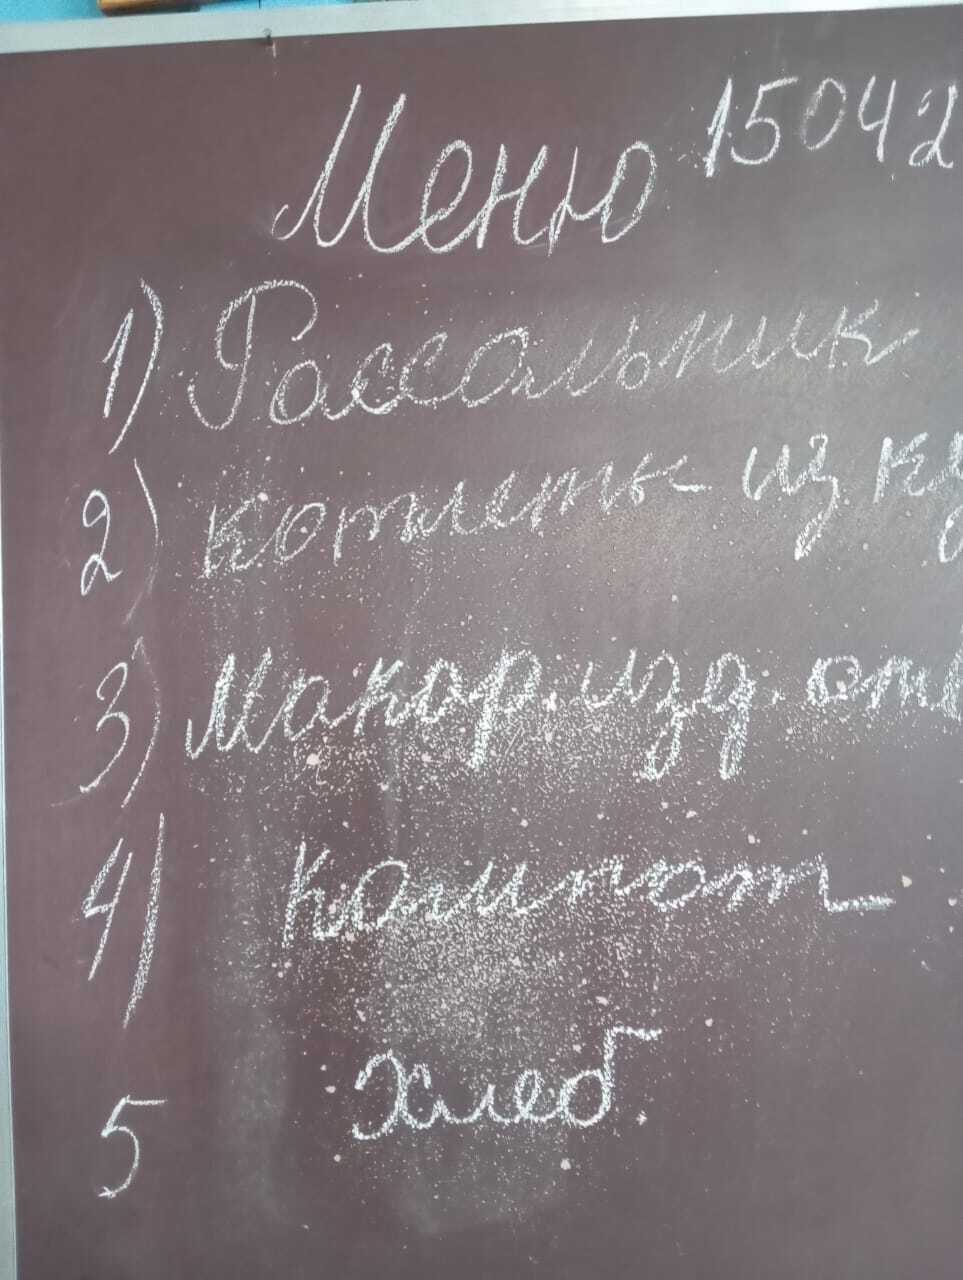 Меню 15042
1) Рассольник
2) котлеты из ку
3) Макар. изд. отв
4) Компот
5 Хлеб